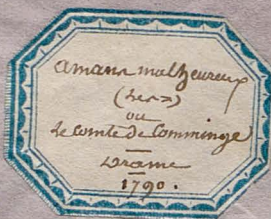 amans malheureux
(Les)
ou
le comte de Comminge
Drame
1790.